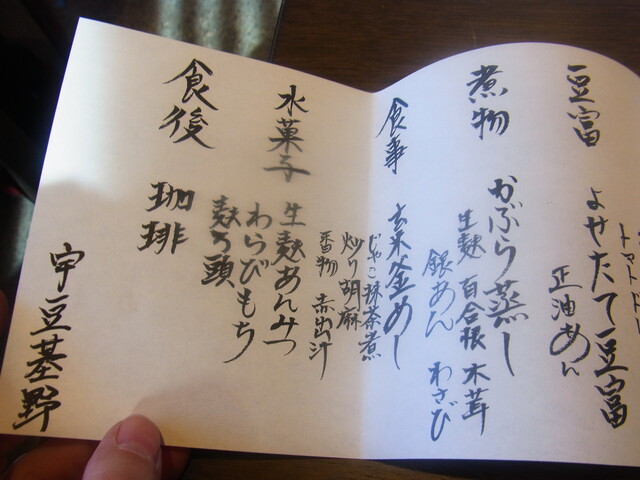 トマト
豆富
よせたて豆富
正油あん
煮物
かぶら蒸し
生麩 百合根 木茸
銀あん わさび
食事
玄米釜めし
じゃこ抹茶煮
炒り胡麻
香物 赤出汁
水菓子
生麩あんみつ
わらびもち
麩万頭
食後
珈琲
宇豆基野